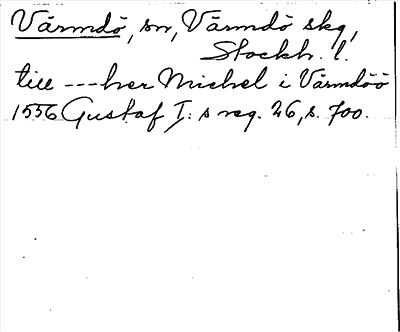 Värmdö, sn, Värmdö skg,
Stockh. l.
till --- her Michel i Värmdöö
1556 Gustaf I:s reg. 26, s. 700.